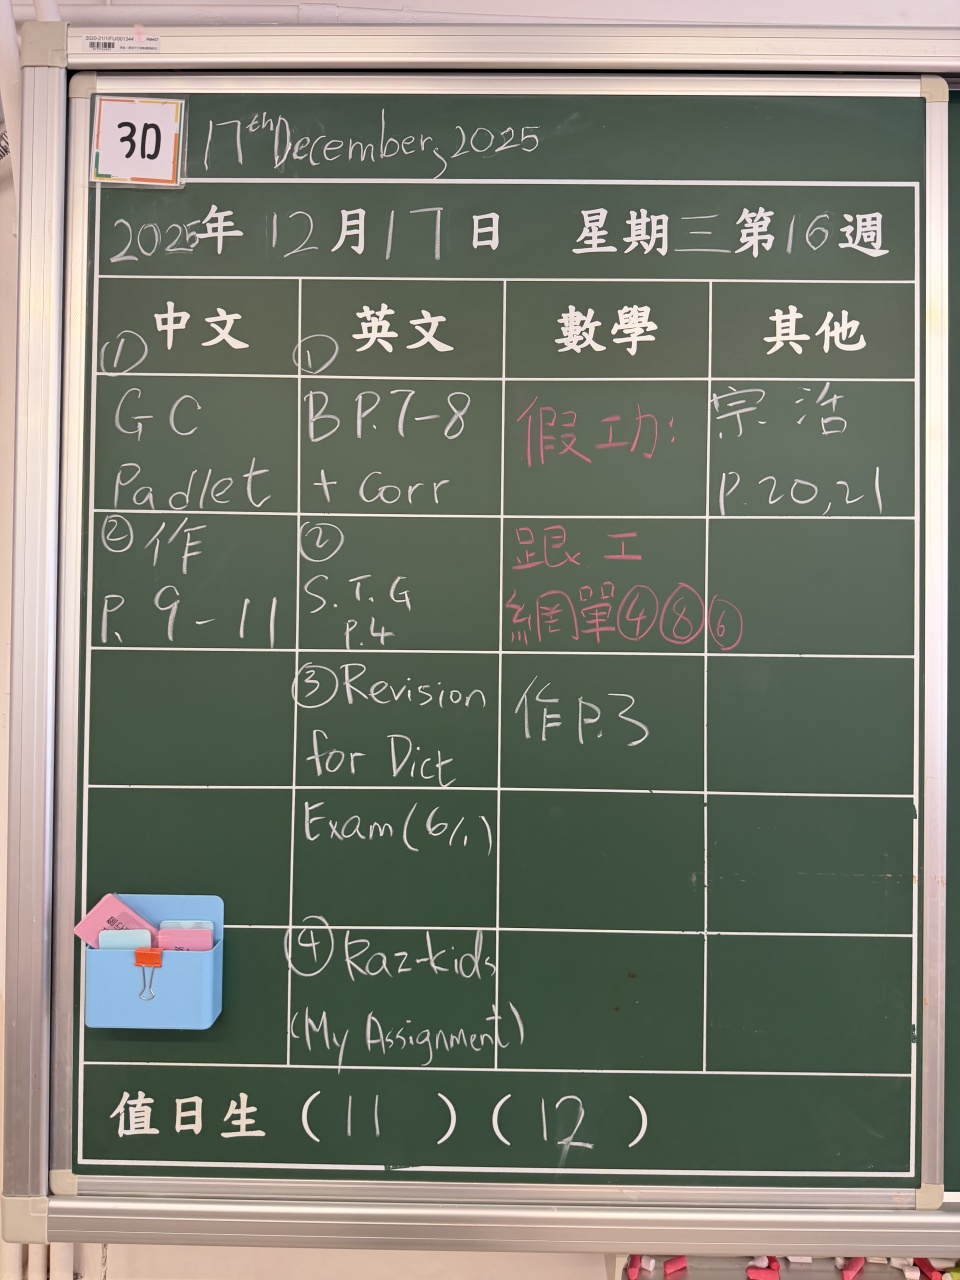 2020-21/1/FU/001344
3D
17th December, 2025
2025年 12月17日 星期三第16週
中文
①
GC
Padlet
② 作
P. 9-11
英文
①
B P.7-8
+ Corr
②
S.T.G
P.4
③ Revision
for Dict
Exam (6/1)
④ Raz-kids
(My Assignment)
數學
假工功:
跟工
網單④⑧⑥
作P.3
其他
宗.活
P.20,21
值日生 (11) (12)